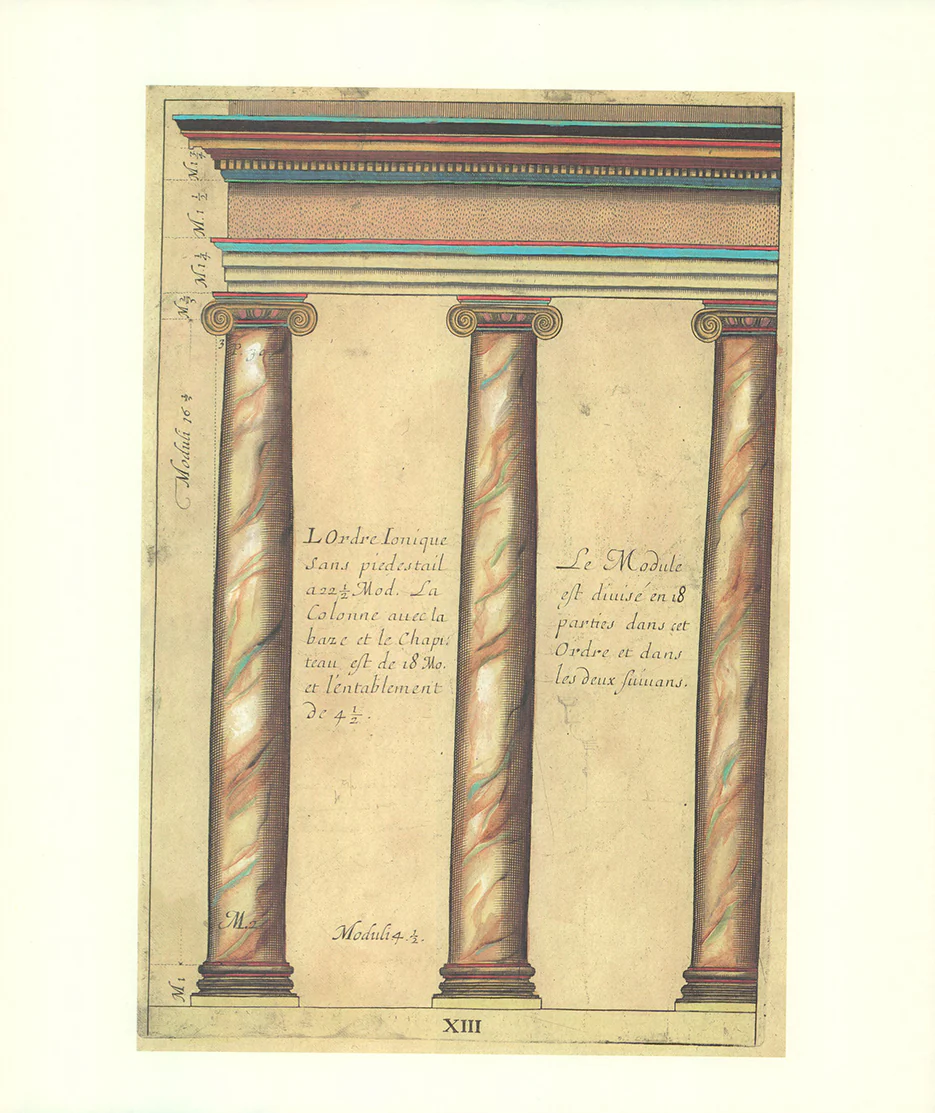 M. 1 3/4
M. 1 1/2
M. 1 1/4
M. 2/3
Moduli 16 1/3
M. 1
LOrdre Ionique
sans piedestail
a 22 1/2 Mod. La
Colonne auec la
baze et le Chapi:
teau est de 18 Mo.
et l'entablement
de 4 1/2.
Le Module
est diuisé en 18
parties dans cet
Ordre et dans
les deux suiuans.
M. 2
Moduli 4 1/2.
XIII